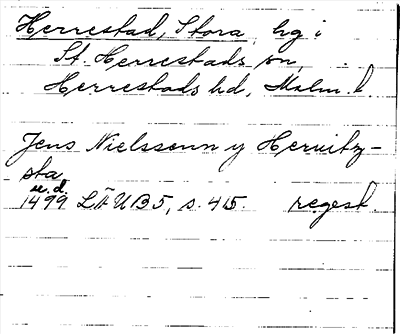 Herrestad, Stora, hg i
St. Herrestads sn,
Herrestads hd, Malm. l.
Jens Nielssenn y Hervitz-
sta
u.d.
1499 LÄUB 5, s. 415. regest.